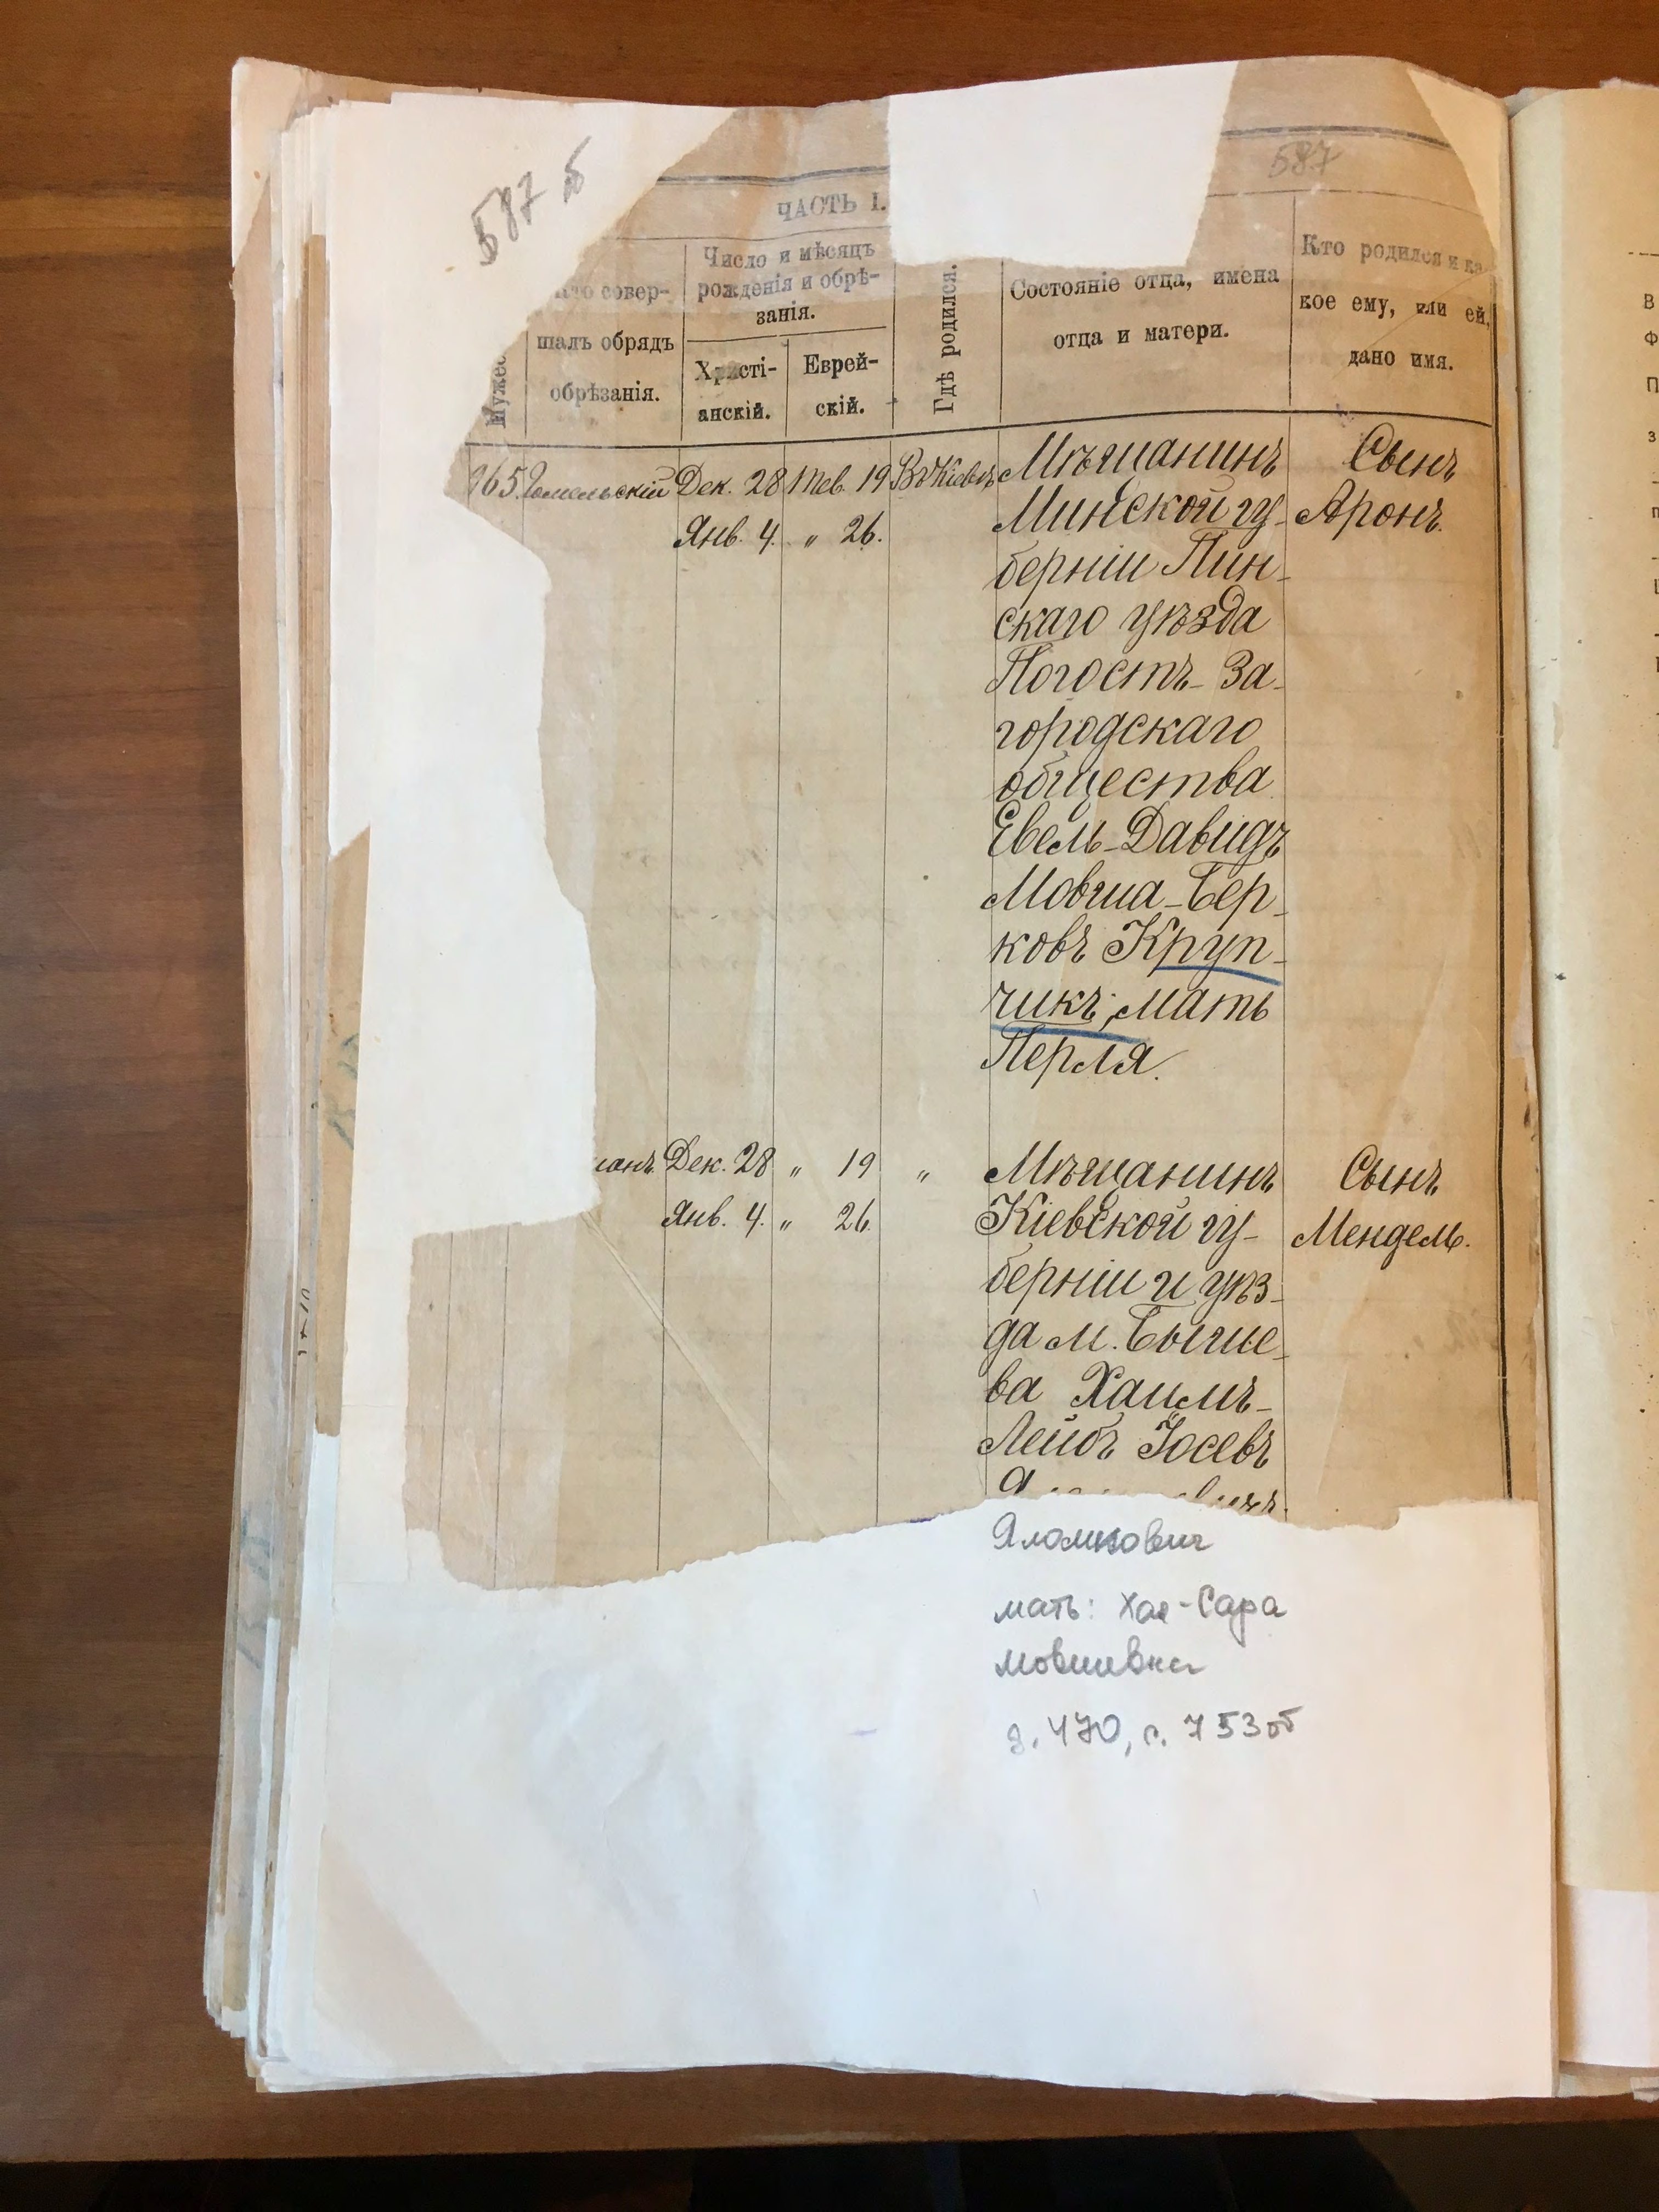 587 об
587
ЧАСТЬ I.
Мужес
совер-
шалъ обрядъ
обрѣзанія.
Число и мѣсяцъ
рожденія и обрѣ-
занія.
Христі-
анскій.
Еврей-
скій.
Гдѣ родился.
Состояніе отца, имена
отца и матери.
Кто родился и ка
кое ему, или ей,
дано имя.
965. Гомельскій Дек. 28 Тев. 19 Въ Кіевѣ Мѣщанинъ Сынъ
Янв. 4. " 26. Минской гу- Аронъ.
берніи Пин-
скаго уѣзда
Погостъ-За-
городскаго
общества
Евель-Давидъ
Мовша-Бер-
ковъ Круп-
чикъ, мать
Перля.
манъ Дек. 28 " 19 " Мѣщанинъ Сынъ
Янв. 4. " 26. Кіевской гу- Мендель.
берніи и уѣз-
да м. Быше-
ва Хаимъ-
Лейбъ Іосевъ
мать: Хая-Сара
Мовшевна
д. 470, с. 753 об